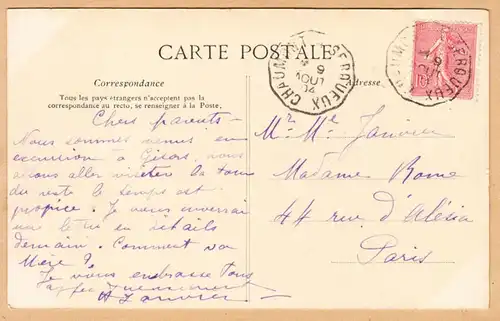 CARTE POSTALE
Correspondance
Adresse
Tous les pays étrangers n'acceptent pas la
correspondance au recto, se renseigner à la Poste,
CHAUM SERQUEUX
9
AOUT
04
SERQUEUX
9
Chers parents -
Nous sommes venus en
excursion à Gisors, nous
avons aller visiter la tour
du reste le temps est
propice. Je vous enverrai
une lettre en détails
demain. Comment va
Mère ?
Je vous embrasse tous
affectueusement
Janvier
Mr Me Janvier
Madame Rome
44 rue d'Alésia
Paris